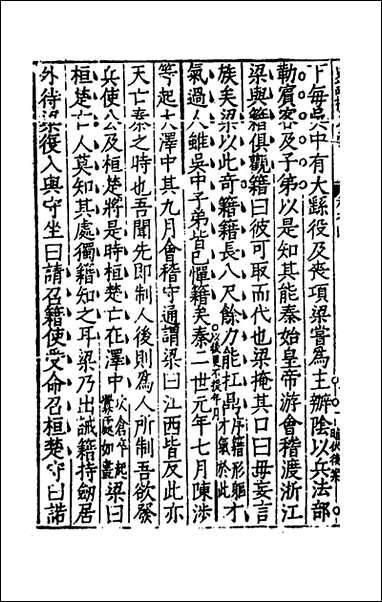 下每吳中有大繇役及喪項梁嘗爲主辦陰以兵法部
勒賓客及子弟以是知其能秦始皇帝游會稽渡浙江
梁與籍俱觀籍曰彼可取而代也梁掩其口曰毋妄言
族矣梁以此奇籍籍長八尺餘力能扛鼎才氣於此序籍形軀才
氣過人雖吳中子弟皆已憚籍矣秦二世元年七月陳涉
等起大澤中其九月會稽守通謂梁曰江西皆反此亦
天亡秦之時也吾聞先即制人後則爲人所制吾欲發
兵使公及桓楚將是時桓楚亡在澤中梁曰
桓楚亡人莫知其處獨籍知之耳梁乃出誡籍持劒居
外待梁復入與守坐曰請召籍使受命召桓楚守曰諾